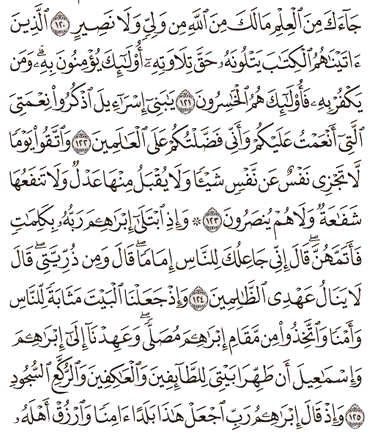 جَآءَكَ مِنَ ٱلْعِلْمِ مَا لَكَ مِنَ ٱللَّهِ مِن وَلِىٍّ وَلَا نَصِيرٍ ١٢٠ ٱلَّذِينَ
ءَاتَيْنَـٰهُمُ ٱلْكِتَـٰبَ يَتْلُونَهُۥ حَقَّ تِلَاوَتِهِۦٓ أُو۟لَـٰٓئِكَ يُؤْمِنُونَ بِهِۦ ۗ وَمَن
يَكْفُرْ بِهِۦ فَأُو۟لَـٰٓئِكَ هُمُ ٱلْخَـٰسِرُونَ ١٢١ يَـٰبَنِىٓ إِسْرَٰٓءِيلَ ٱذْكُرُوا۟ نِعْمَتِىَ
ٱلَّتِىٓ أَنْعَمْتُ عَلَيْكُمْ وَأَنِّى فَضَّلْتُكُمْ عَلَى ٱلْعَـٰلَمِينَ ١٢٢ وَٱتَّقُوا۟ يَوْمًا
لَّا تَجْزِى نَفْسٌ عَن نَّفْسٍ شَيْـًٔا وَلَا يُقْبَلُ مِنْهَا عَدْلٌ وَلَا تَنفَعُهَا
شَفَـٰعَةٌ وَلَا هُمْ يُنصَرُونَ ١٢٣ ۞ وَإِذِ ٱبْتَلَىٰٓ إِبْرَٰهِـۧمَ رَبُّهُۥ بِكَلِمَـٰتٍ
فَأَتَمَّهُنَّ ۖ قَالَ إِنِّى جَاعِلُكَ لِلنَّاسِ إِمَامًا ۖ قَالَ وَمِن ذُرِّيَّتِى ۖ قَالَ
لَا يَنَالُ عَهْدِى ٱلظَّـٰلِمِينَ ١٢٤ وَإِذْ جَعَلْنَا ٱلْبَيْتَ مَثَابَةً لِّلنَّاسِ
وَأَمْنًا وَٱتَّخِذُوا۟ مِن مَّقَامِ إِبْرَٰهِـۧمَ مُصَلًّى ۖ وَعَهِدْنَآ إِلَىٰٓ إِبْرَٰهِـۧمَ
وَإِسْمَـٰعِيلَ أَن طَهِّرَا بَيْتِىَ لِلطَّآئِفِينَ وَٱلْعَـٰكِفِينَ وَٱلرُّكَّعِ ٱلسُّجُودِ
١٢٥ وَإِذْ قَالَ إِبْرَٰهِـۧمُ رَبِّ ٱجْعَلْ هَـٰذَا بَلَدًا ءَامِنًا وَٱرْزُقْ أَهْلَهُۥ